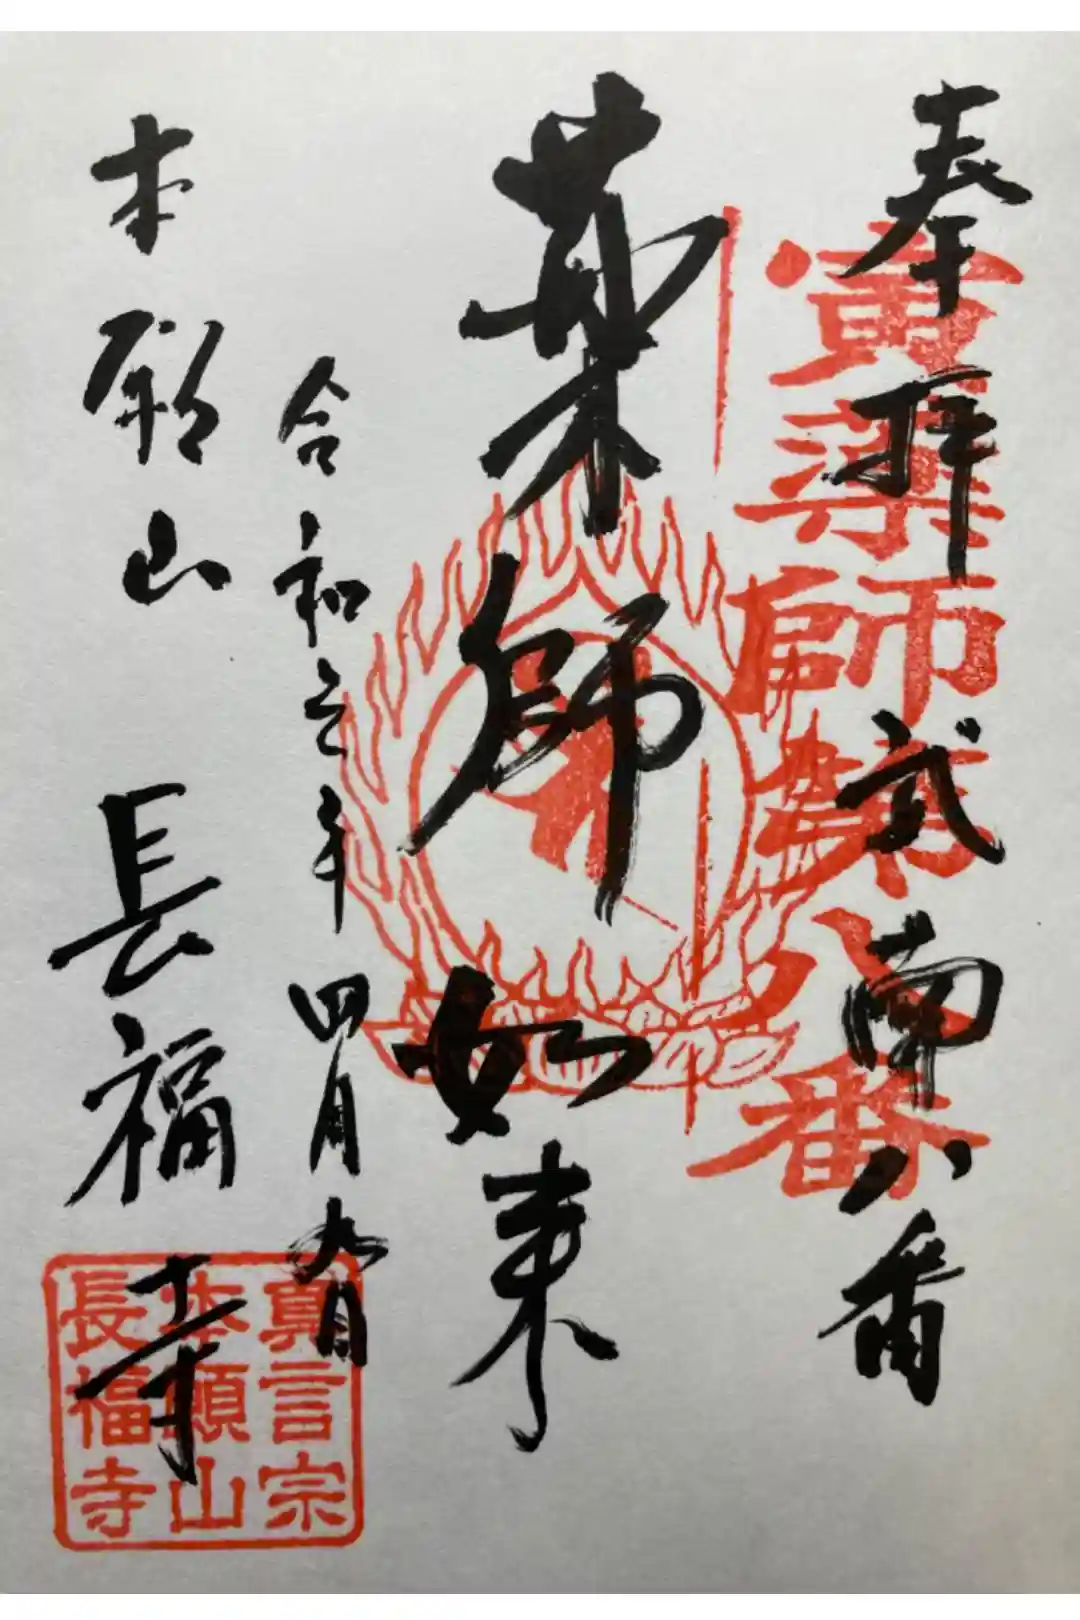 奉拝 武南八番
寅薬師第八番
薬師如来
令和 年四月九日
本願山 長福寺
真言宗
本願山
長福寺